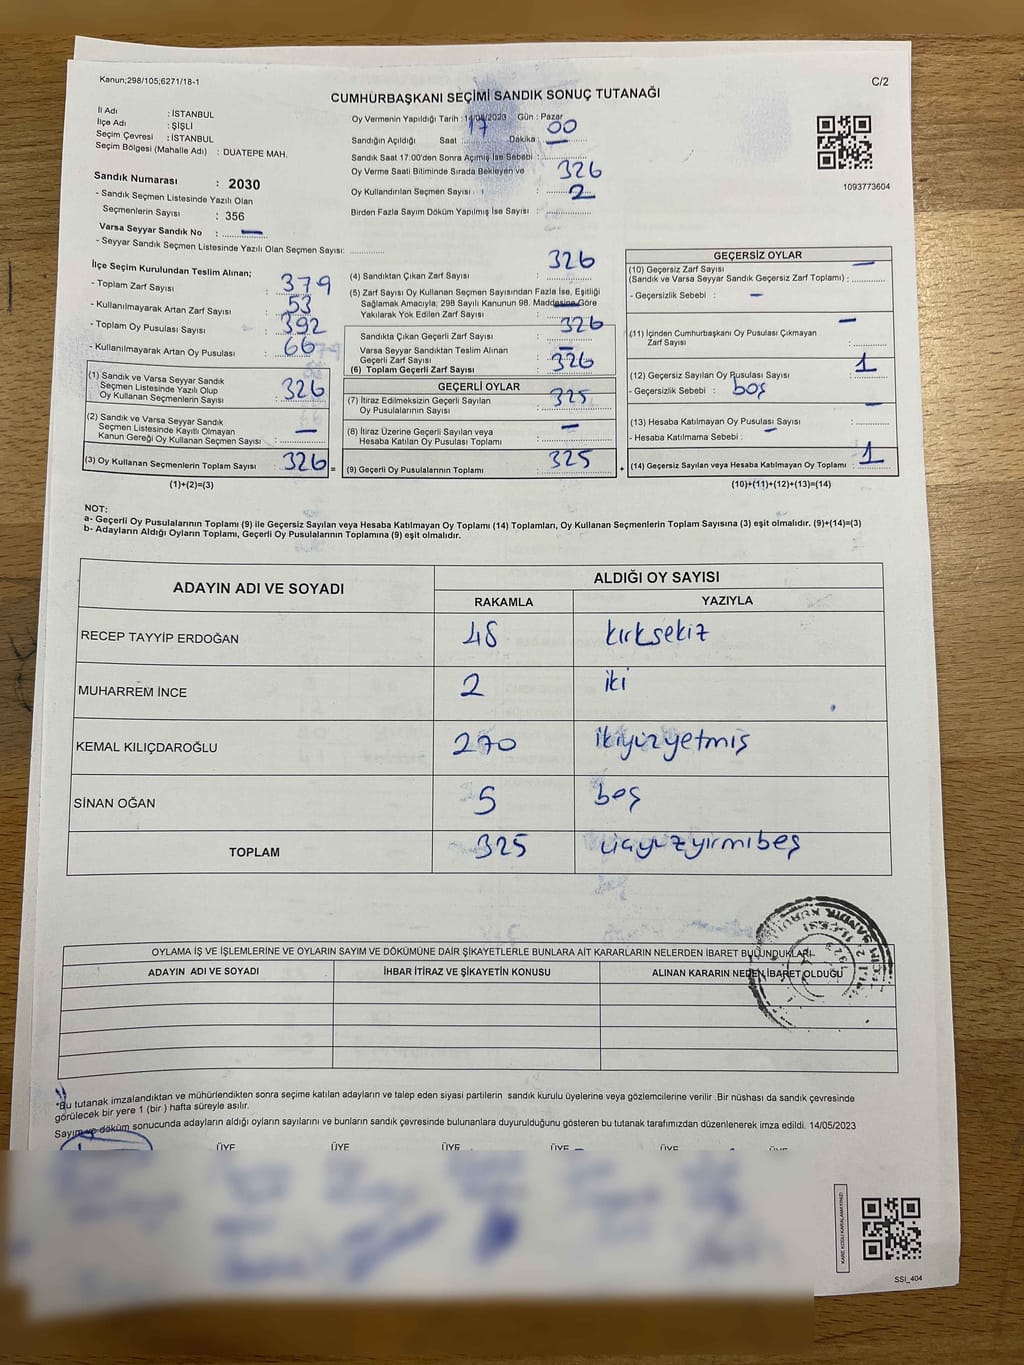 Kanun;298/105;6271/18-1
C/2
CUMHURBAŞKANI SEÇİMİ SANDIK SONUÇ TUTANAĞI
İl Adı : İSTANBUL
İlçe Adı : ŞİŞLİ
Seçim Çevresi : İSTANBUL
Seçim Bölgesi (Mahalle Adı) : DUATEPE MAH.
Sandık Numarası : 2030
- Sandık Seçmen Listesinde Yazılı Olan
Seçmenlerin Sayısı : 356
Varsa Seyyar Sandık No : —
- Seyyar Sandık Seçmen Listesinde Yazılı Olan Seçmen Sayısı:
Oy Vermenin Yapıldığı Tarih : 14/05/2023 Gün : Pazar
Sandığın Açıldığı Saat : 17 Dakika : 00
Sandık Saat 17:00'den Sonra Açımış İse Sebebi :
Oy Verme Saati Bitiminde Sırada Bekleyen ve
Oy Kullandırılan Seçmen Sayısı : 326
Birden Fazla Sayım Döküm Yapılmış İse Sayısı : 2
1093773604
İlçe Seçim Kurulundan Teslim Alınan;
- Toplam Zarf Sayısı : 379
- Kullanılmayarak Artan Zarf Sayısı : 53
- Toplam Oy Pusulası Sayısı : 392
- Kullanılmayarak Artan Oy Pusulası : 66
(1) Sandık ve Varsa Seyyar Sandık
Seçmen Listesinde Yazılı Olup
Oy Kullanan Seçmenlerin Sayısı : 326
(2) Sandık ve Varsa Seyyar Sandık
Seçmen Listesinde Kayıtlı Olmayan
Kanun Gereği Oy Kullanan Seçmen Sayısı : —
(3) Oy Kullanan Seçmenlerin Toplam Sayısı : 326 =
(1)+(2)=(3)
(4) Sandıktan Çıkan Zarf Sayısı : 326
(5) Zarf Sayısı Oy Kullanan Seçmen Sayısından Fazla İse, Eşitliği
Sağlamak Amacıyla; 298 Sayılı Kanunun 98. Maddesine Göre
Yakılarak Yok Edilen Zarf Sayısı : —
Sandıkta Çıkan Geçerli Zarf Sayısı : 326
Varsa Seyyar Sandıktan Teslim Alınan
Geçerli Zarf Sayısı : —
(6) Toplam Geçerli Zarf Sayısı : 326
GEÇERLİ OYLAR
(7) İtiraz Edilmeksizin Geçerli Sayılan
Oy Pusulalarının Sayısı : 325
(8) İtiraz Üzerine Geçerli Sayılan veya
Hesaba Katılan Oy Pusulası Toplamı : —
(9) Geçerli Oy Pusulalarının Toplamı : 325 +
GEÇERSİZ OYLAR
(10) Geçersiz Zarf Sayısı
(Sandık ve Varsa Seyyar Sandık Geçersiz Zarf Toplamı) : —
- Geçersizlik Sebebi : —
(11) İçinden Cumhurbaşkanı Oy Pusulası Çıkmayan
Zarf Sayısı : —
(12) Geçersiz Sayılan Oy Pusulası Sayısı : 1
- Geçersizlik Sebebi : boş
(13) Hesaba Katılmayan Oy Pusulası Sayısı : —
- Hesaba Katılmama Sebebi : —
(14) Geçersiz Sayılan veya Hesaba Katılmayan Oy Toplamı : 1
(10)+(11)+(12)+(13)=(14)
NOT:
a- Geçerli Oy Pusulalarının Toplamı (9) ile Geçersiz Sayılan veya Hesaba Katılmayan Oy Toplamı (14) Toplamları, Oy Kullanan Seçmenlerin Toplam Sayısına (3) eşit olmalıdır. (9)+(14)=(3)
b- Adayların Aldığı Oyların Toplamı, Geçerli Oy Pusulalarının Toplamına (9) eşit olmalıdır.
ADAYIN ADI VE SOYADI
ALDIĞI OY SAYISI
RAKAMLA YAZIYLA
RECEP TAYYİP ERDOĞAN 48 kırksekiz
MUHARREM İNCE 2 iki
KEMAL KILIÇDAROĞLU 270 ikiyüzyetmiş
SİNAN OĞAN 5 beş
TOPLAM 325 üçyüzyirmibeş
OYLAMA İŞ VE İŞLEMLERİNE VE OYLARIN SAYIM VE DÖKÜMÜNE DAİR ŞİKAYETLERLE BUNLARA AİT KARARLARIN NELERDEN İBARET BULUNDUKLARI
ADAYIN ADI VE SOYADI İHBAR İTİRAZ VE ŞİKAYETİN KONUSU ALINAN KARARIN NEDEN İBARET OLDUĞU
*Bu tutanak imzalandıktan ve mühürlendikten sonra seçime katılan adayların ve talep eden siyasi partilerin sandık kurulu üyelerine veya gözlemcilerine verilir .Bir nüshası da sandık çevresinde
görülecek bir yere 1 (bir ) hafta süreyle asılır.
Sayım ve döküm sonucunda adayların aldığı oyların sayılarını ve bunların sandık çevresinde bulunanlara duyurulduğunu gösteren bu tutanak tarafımızdan düzenlenerek imza edildi. 14/05/2023
ÜYE ÜYE ÜYE ÜYE ÜYE ÜYE
SSI_404